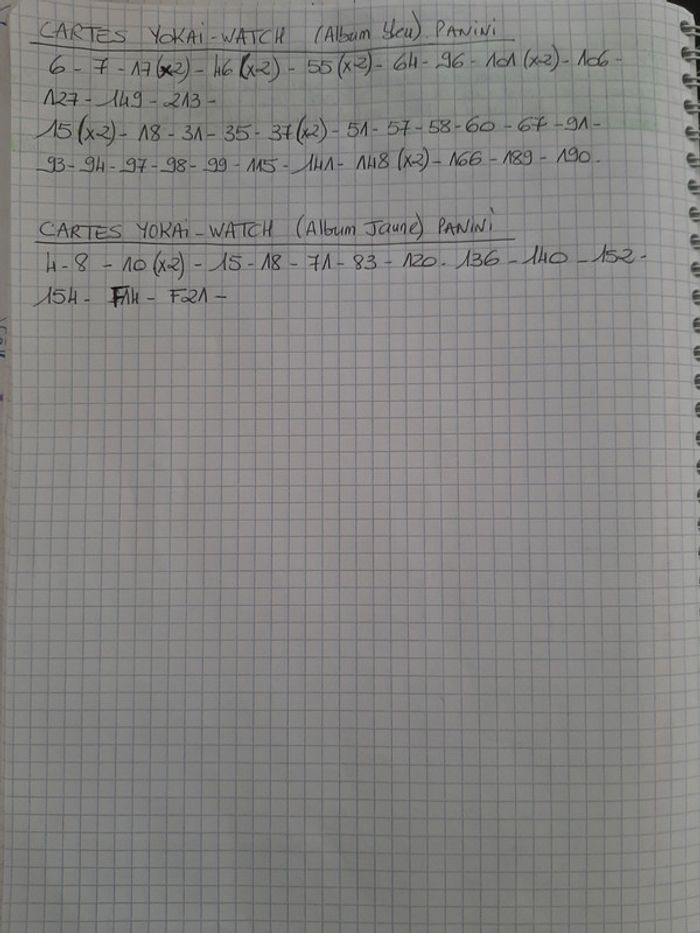 CARTES YOKAi-WATCH (Album bleu) PANiNi
6 - 7 - 17 (x2) - 46 (x2) - 55 (x2) - 64 - 96 - 101 (x2) - 106 -
127 - 149 - 213 -
15 (x2) - 18 - 31 - 35 - 37 (x2) - 51 - 57 - 58 - 60 - 67 - 91 -
93 - 94 - 97 - 98 - 99 - 115 - 141 - 148 (x2) - 166 - 189 - 190.
CARTES YOKAi-WATCH (Album Jaune) PANiNi
4 - 8 - 10 (x2) - 15 - 18 - 71 - 83 - 120 - 136 - 140 - 152 -
154 - F14 - F21 -